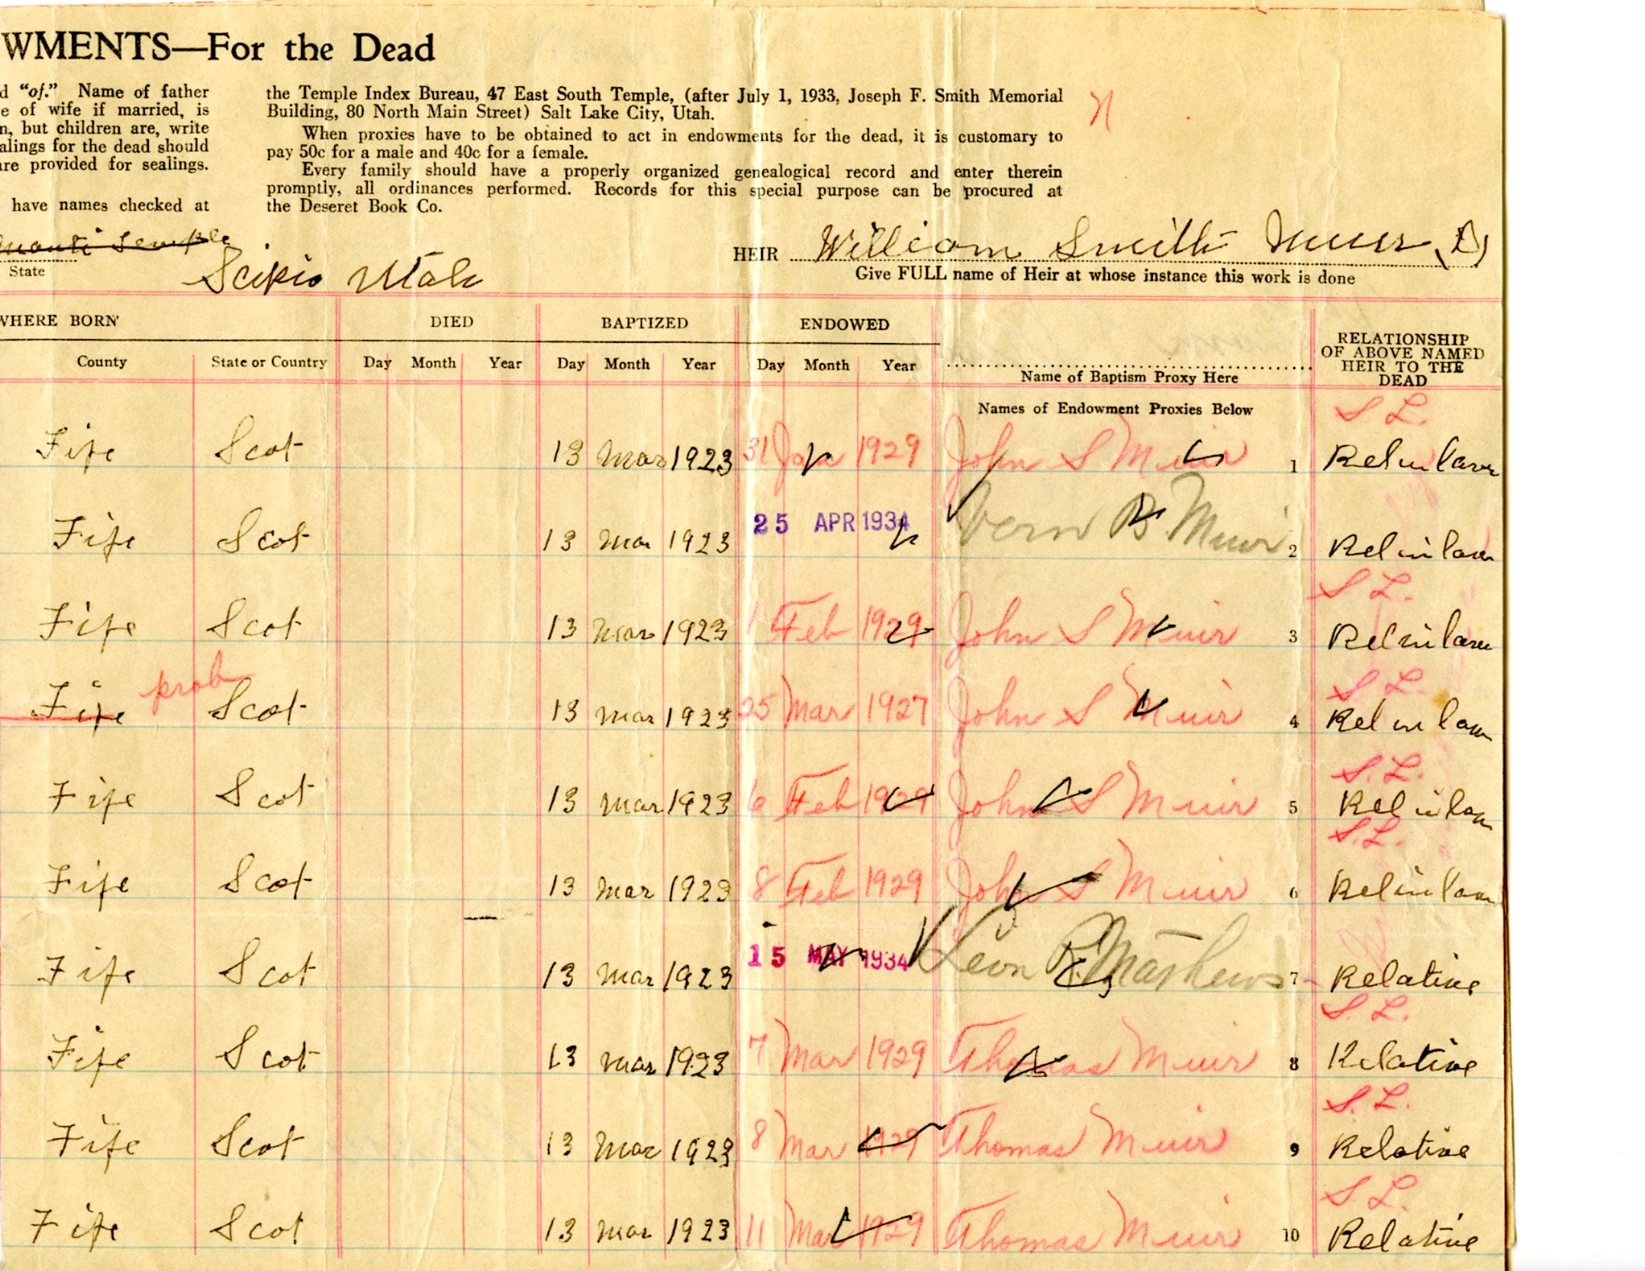 WMENTS—For the Dead
d "of." Name of father
e of wife if married, is
n, but children are, write
alings for the dead should
are provided for sealings.
have names checked at
the Temple Index Bureau, 47 East South Temple, (after July 1, 1933, Joseph F. Smith Memorial
Building, 80 North Main Street) Salt Lake City, Utah.
When proxies have to be obtained to act in endowments for the dead, it is customary to
pay 50c for a male and 40c for a female.
Every family should have a properly organized genealogical record and enter therein
promptly, all ordinances performed. Records for this special purpose can be procured at
the Deseret Book Co.
Manti Temple
State
Scipio Utah
HEIR William Smith Muir (D)
Give FULL name of Heir at whose instance this work is done
WHERE BORN DIED BAPTIZED ENDOWED
County State or Country Day Month Year Day Month Year Day Month Year
Name of Baptism Proxy Here
Names of Endowment Proxies Below
RELATIONSHIP
OF ABOVE NAMED
HEIR TO THE
DEAD
S L.
Fife Scot 13 Mar 1923 31 Jan 1929 John S Muir 1 Rel in law
Fife Scot 13 Mar 1923 25 APR 1934 Vern B Muir 2 Rel in law
S L.
Fife Scot 13 Mar 1923 1 Feb 1929 John S Muir 3 Rel in law
prob S L.
Fife Scot 13 Mar 1923 25 Mar 1927 John S Muir 4 Rel in law
S. L.
Fife Scot 13 Mar 1923 6 Feb 1929 John S Muir 5 Rel in law
S. L.
Fife Scot 13 Mar 1923 8 Feb 1929 John S Muir 6 Rel in law
Fife Scot 13 Mar 1923 15 MAY 1934 Leon R. Mathews 7 Relative
S L.
Fife Scot 13 Mar 1923 7 Mar 1929 Thomas Muir 8 Relative
S. L.
Fife Scot 13 Mar 1923 8 Mar 1929 Thomas Muir 9 Relative
S. L.
Fife Scot 13 Mar 1923 11 Mar 1929 Thomas Muir 10 Relative